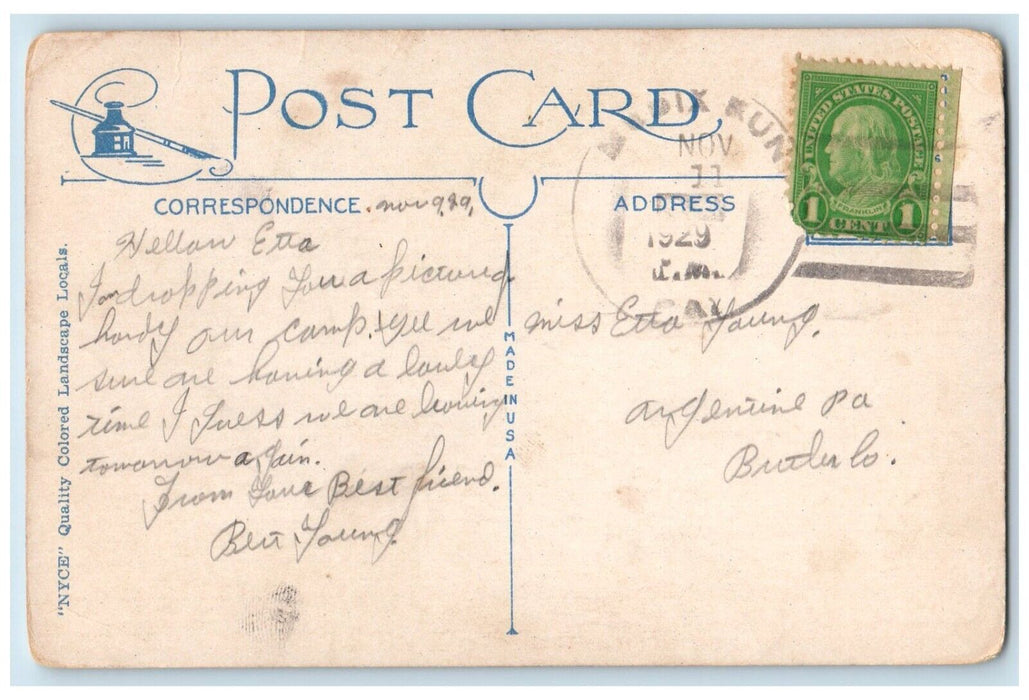 POST CARD
CORRESPONDENCE. nov 9, 29,
ADDRESS
UNITED STATES POSTAGE
FRANKLIN
1 CENT 1
DIX RUN
NOV
11
1929
PA
Hellow Etta
I am dropping You a picture
hody our camp. Yes we
sure are having a lovely
time I guess we are leaving
tomorrow again.
From Your Best friend.
Bert Young
MADE IN USA
miss Etta Young.
Argentine Pa
Butler Co.
"NYCE" Quality Colored Landscape Locals.